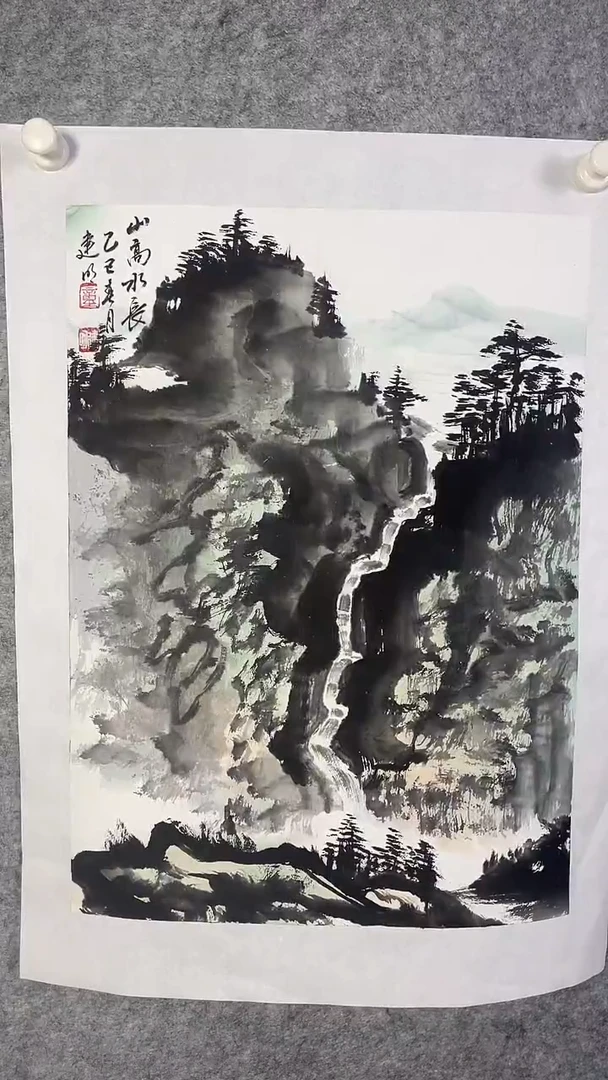 山高水长
乙巳春月
建明